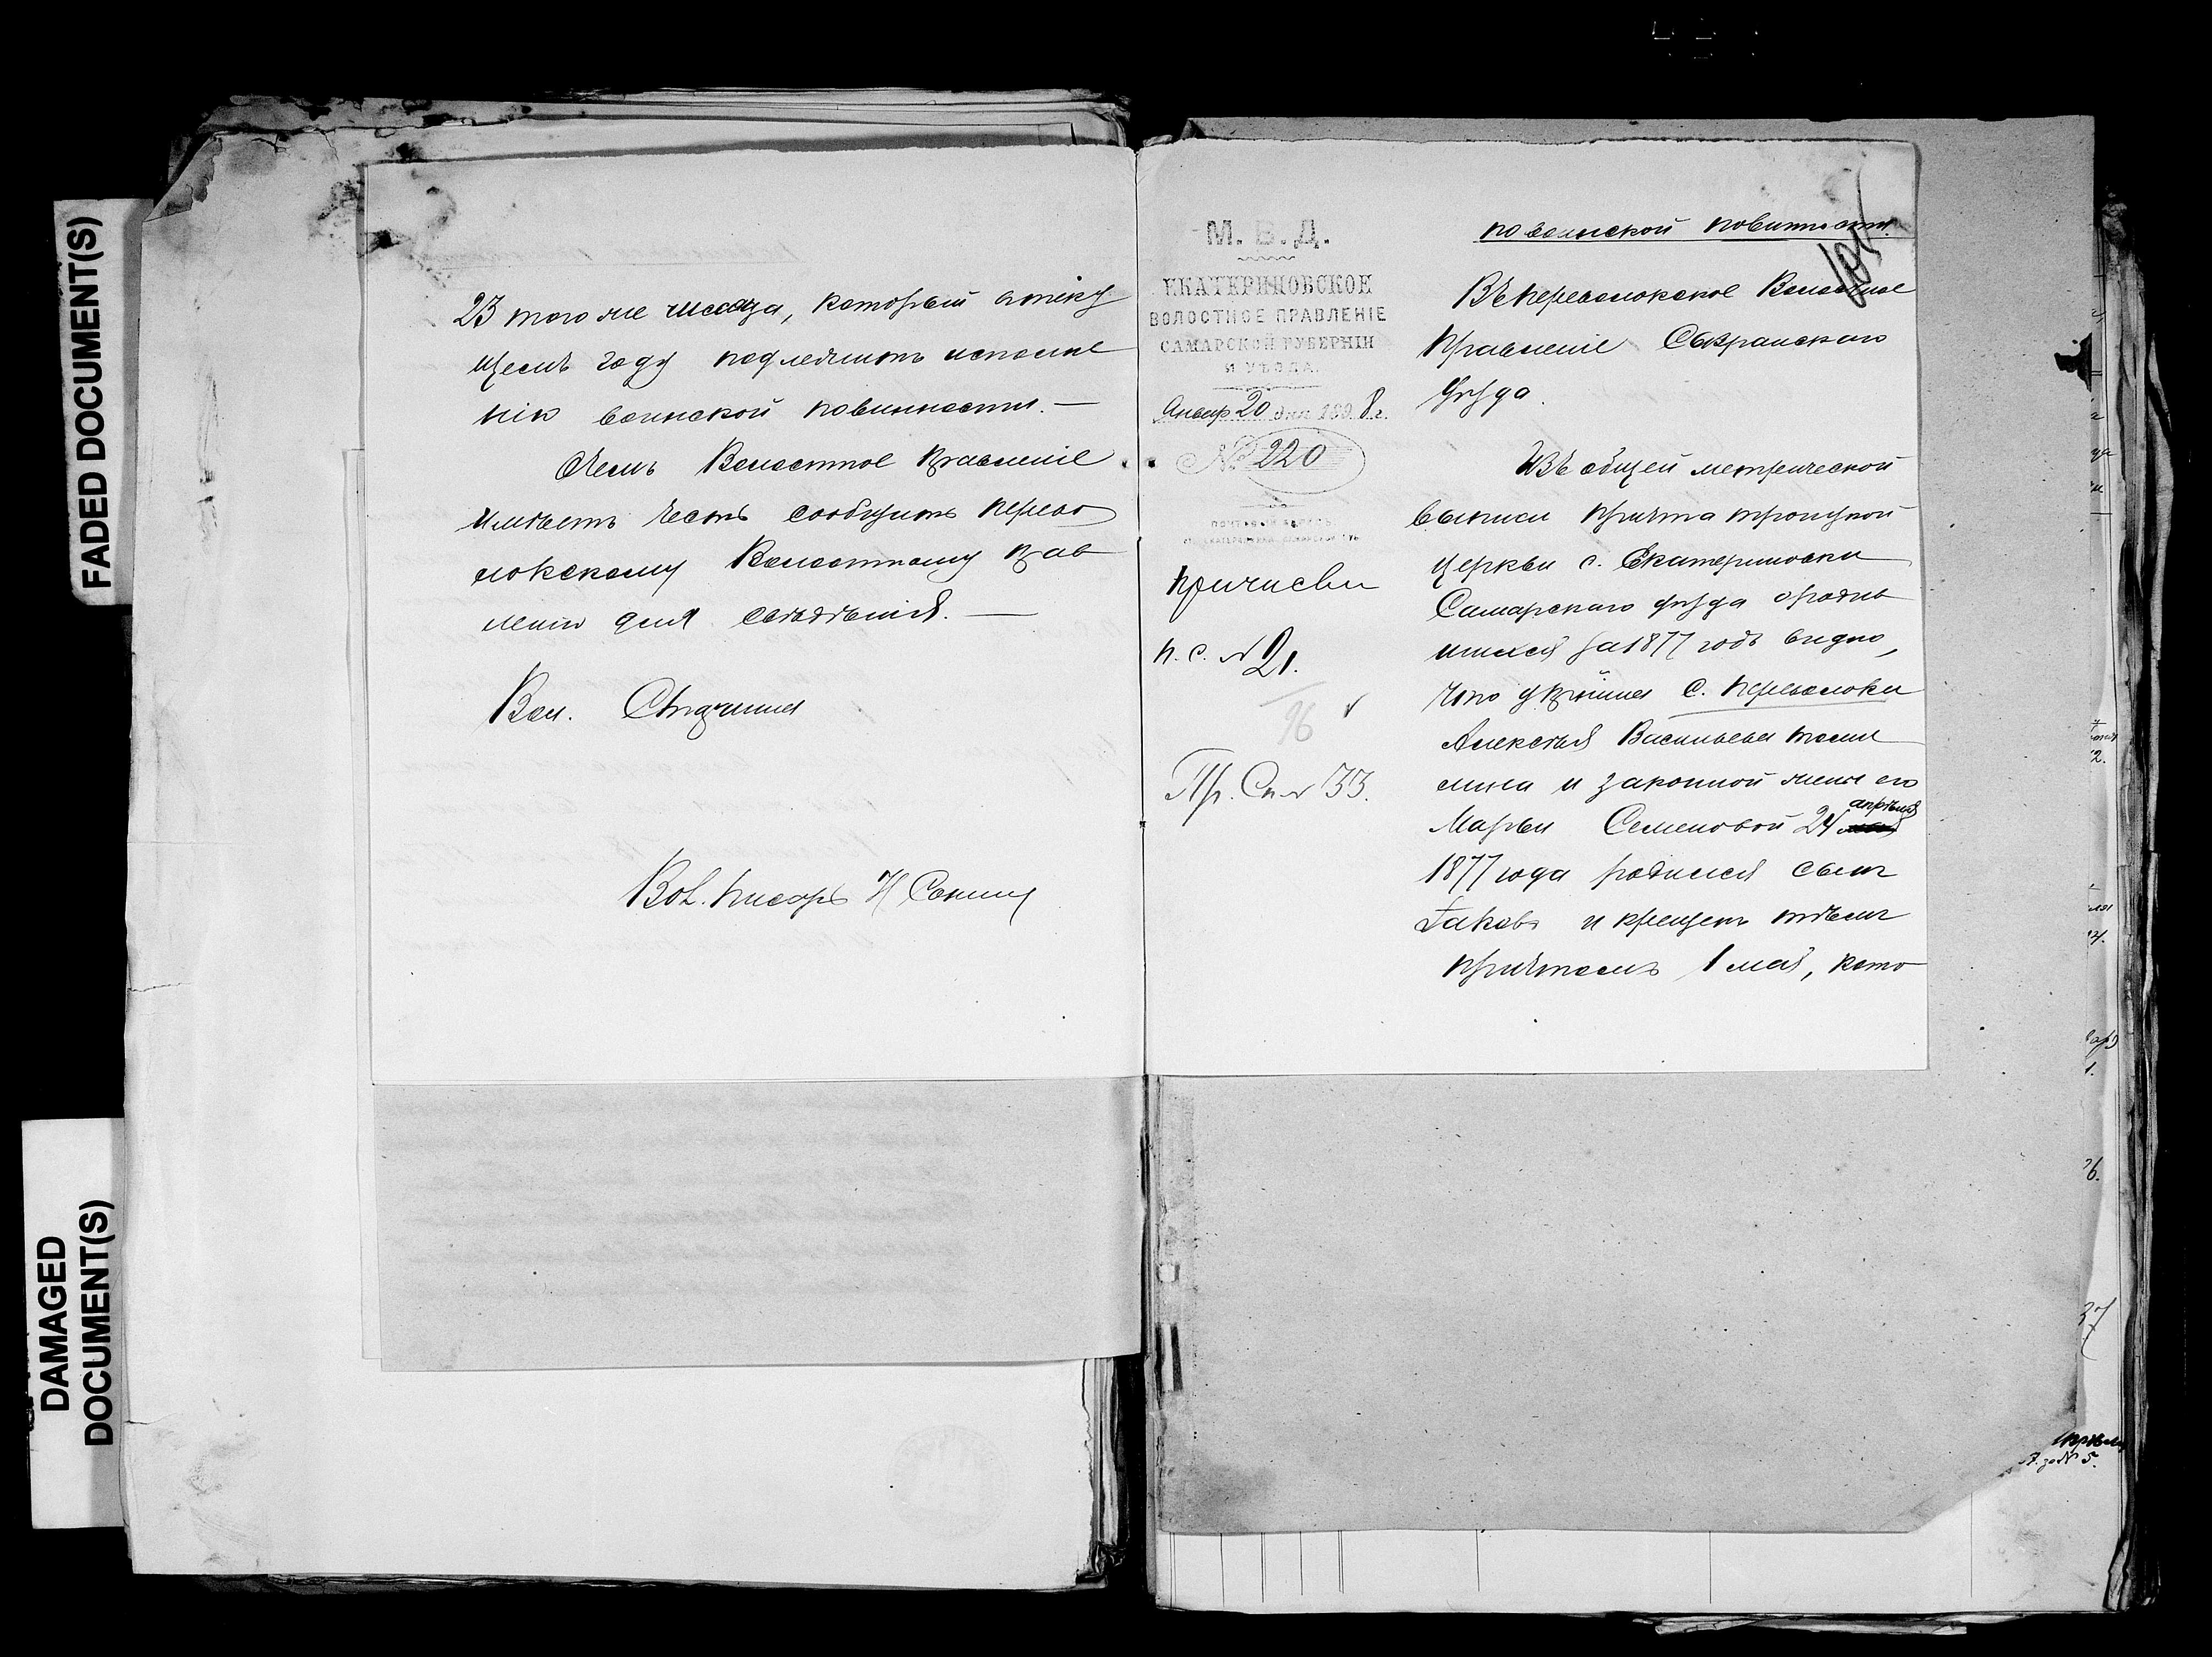 FADED DOCUMENT(S)
DAMAGED
DOCUMENT(S)
23 того же месяца, который в теку
щемъ году подлежитъ исполне
нію воинской повинности.—
О чемъ Волостное Правленіе
имѣетъ честь сообщить Перево
локскому Волостному Прав
ленію для свѣдѣнія.—
Вол. Старшина
Вол. писарь Н Сонинъ
М. В. Д.
ЕКАТЕРИНОВСКОЕ
ВОЛОСТНОЕ ПРАВЛЕНІЕ
САМАРСКОЙ ГУБЕРНІИ
И УѢЗДА.
Январ 20 дня 1898 г.
№ 220
Причислен
п. с. № 21.
96
Пр. Сп № 33.
по воинской повинности.
Въ Переволокское Волостное
Правленіе Сызранскаго
уѣзда.
Изъ общей метрической
выписи причта Троицкой
церкви с. Екатериновки
Самарскаго уѣзда о родив
шихся за 1877 годъ видно,
что у кр-нина с. Переволоки
Алексѣя Васильева
и законной жены его
Марьи Семеновой 24 апрѣля
1877 года родился сынъ
Іаковъ и крещенъ тѣмъ
причтомъ 1 мая, кото